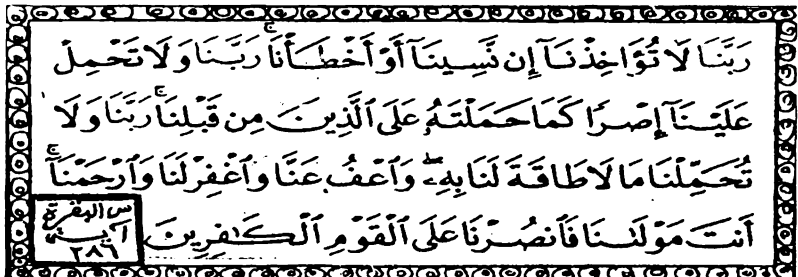 رَبَّنَا لَا تُؤَاخِذْنَآ إِن نَّسِينَآ أَوْ أَخْطَأْنَا ۚ رَبَّنَا وَلَا تَحْمِلْ
عَلَيْنَآ إِصْرًا كَمَا حَمَلْتَهُۥ عَلَى ٱلَّذِينَ مِن قَبْلِنَا ۚ رَبَّنَا وَلَا
تُحَمِّلْنَا مَا لَا طَاقَةَ لَنَا بِهِۦ ۖ وَٱعْفُ عَنَّا وَٱغْفِرْ لَنَا وَٱرْحَمْنَآ ۚ
أَنتَ مَوْلَىٰنَا فَٱنصُرْنَا عَلَى ٱلْقَوْمِ ٱلْكَٰفِرِينَ
س البقرة
٢٨٦